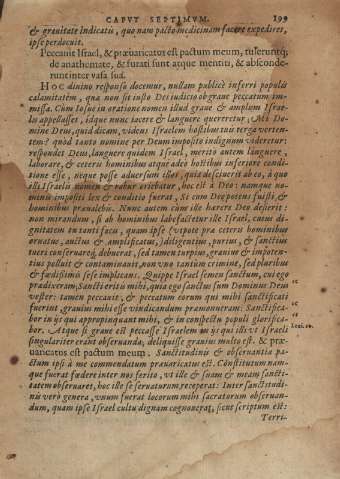 CAPVT SEPTIMVM. 199
& grauitate indicatis, quo nam pacto medicinam facere expediret,
ipse perdocuit.
Peccauit Israel, & præuaricatus est pactum meum, tulerúntq;
de anathemate, & furati sunt atque mentiti, & absconde-
runt inter vasa sua.
HOC diuino responso docemur, nullam publicè inferri populis
calamitatem, qua non sit iusto Dei iudicio ob graue peccatum im-
missa. Cum Iosue in oratione nomen illud graue & amplum Israe-
lis appellasset, idque nunc iacere & languere quereretur; Mi Do-
mine Deus, quid dicam, videns Israelem hostibus suis terga verten-
tem? quod tanto nomine per Deum imposito indignum videretur;
respondet Deus, languere quidem Israel, merito autem languere,
laborare, & ceteris hominibus atque adeo hostibus inferiore condi-
tione esse, neque posse aduersum illos, quia desciuerit ab eo, à quo
illi Israelis nomen & robur oriebatur, hoc est à Deo: namque no-
minis impositi lex & conditio fuerat, Si cum Deo potens fuisti, &
hominibus præualebis. Nunc autem cum ille harere Deo desierit:
non mirandum, si ab hominibus labefactetur ille Israel, cuius di-
gnitatem en tanti feci, quam ipse (vtpote pra ceteris hominibus
ornatus, auctus & amplificatus,) diligentius, purius, & sanctius
tueri conseruareq; debuerat, sed tamen turpius, grauius & impoten-
tius polluit & contaminauit, non vno tantùm crimine, sed pluribus
& fœdissimis sese implicans. Quippe Israel semen sanctum, cui ego
pradixeram, Sancti eritis mihi, quia ego sanctus sum Dominus Deus
vester: tamen peccauit, & peccatum eorum qui mihi sanctificati
fuerint, grauius mihi esse vindicandum præmonueram: Sanctifica-
bor in ijs qui appropinquant mihi, & in conspectu populi glorifica-
bor. Atque si graue est peccasse Israelem in ijs qui illi vt Israeli
Leui. 10.
singulariter erant obseruanda, deliquisse grauius multo est. & præ-
uaricatus est pactum meum. Sanctitudinis & obseruantia pa-
ctum ipsi à me commendatum prauaricatus est. Constitutum nam-
que fuerat fœdere inter nos ferito, vt ille & suam & meam sancti-
tatem obseruaret, hoc ille se seruaturum receperat: Inter sanctitudi-
nis verò genera, vnum fuerat locorum mihi sacratorum obseruan-
dum, quam ipse Israel cultu dignam cognouerat, sicut scriptum est:
Terri-